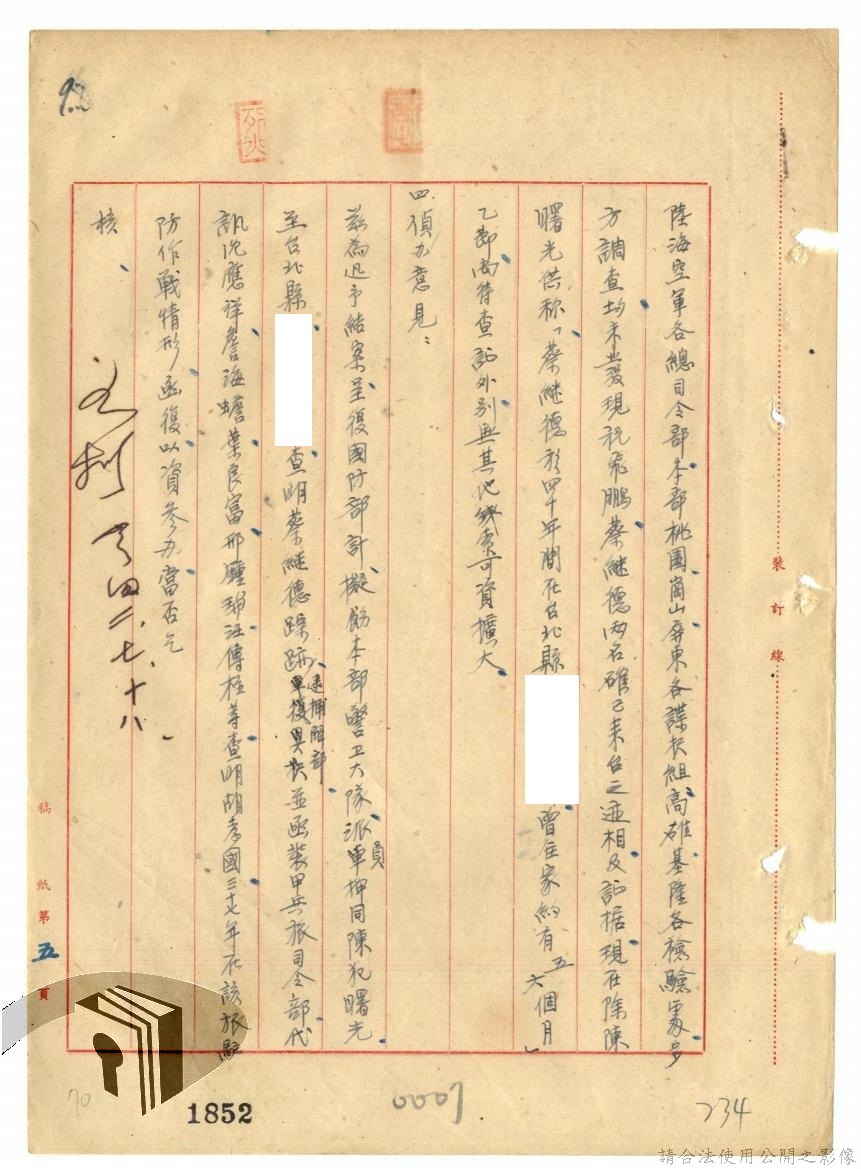 陸海空軍各總司令部本部桃園崗山屏東各諜報組高雄基隆各檢驗處多
方調查均未發現祝飛鵬蔡繼德兩名確已来台之迹相及証据現在除陳
曙光供称「蔡繼德於四十年間在台北縣
曾住家約有五六個月」
乙節尚待查証外别無其他線索可資擴大
四、偵办意見：
茲為迅予結案呈復國防部計擬飭本部警卫大隊派員押同陳犯曙光
至台北縣
查明蔡繼德踪跡
逮捕解部
並函裝甲兵旅司令部代
訊沈應祥詹海蟾葉良富邢
汪傳桂等查明胡孝國三十七年在該旅
防作戰情形函復以資參办當否乞
核
七、十八、
裝訂線
稿紙第五頁
98
70
1852
0007
234
請合法使用公開之影像